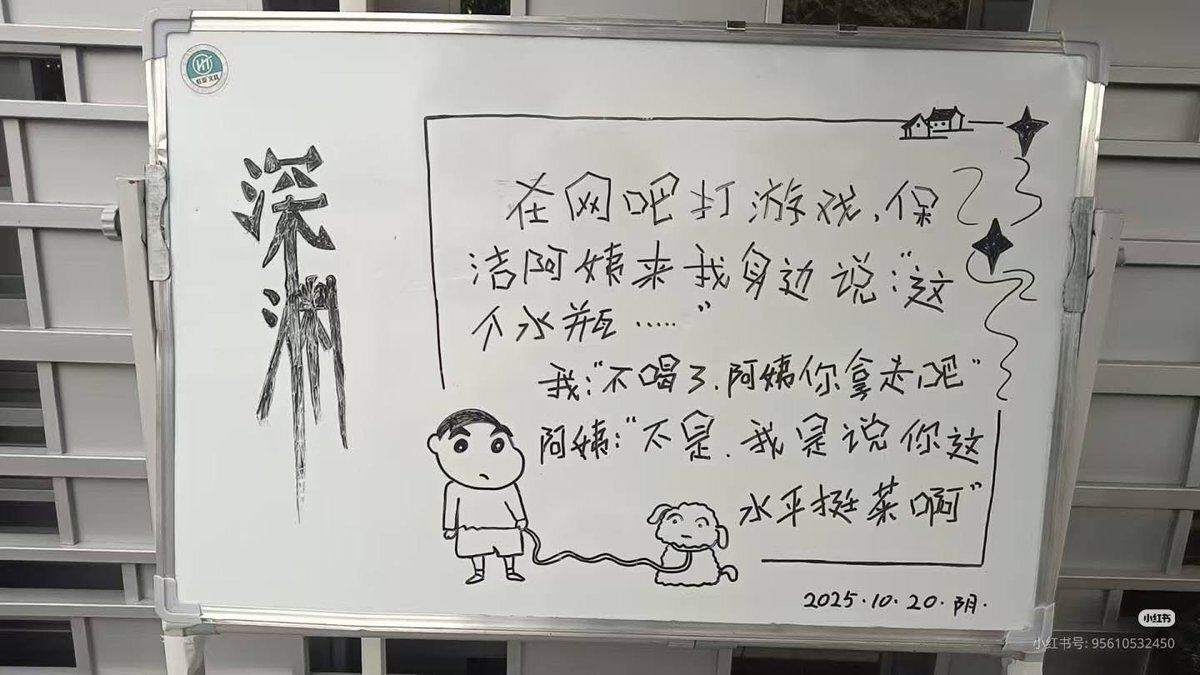 深
渊
在网吧打游戏,保
洁阿姨来我身边说:"这
个水瓶....."
我:"不喝了,阿姨你拿走吧"
阿姨:"不是,我是说你这
水平挺菜啊"
2025.10.20.阴.
小红书
小红书号: 95610532450